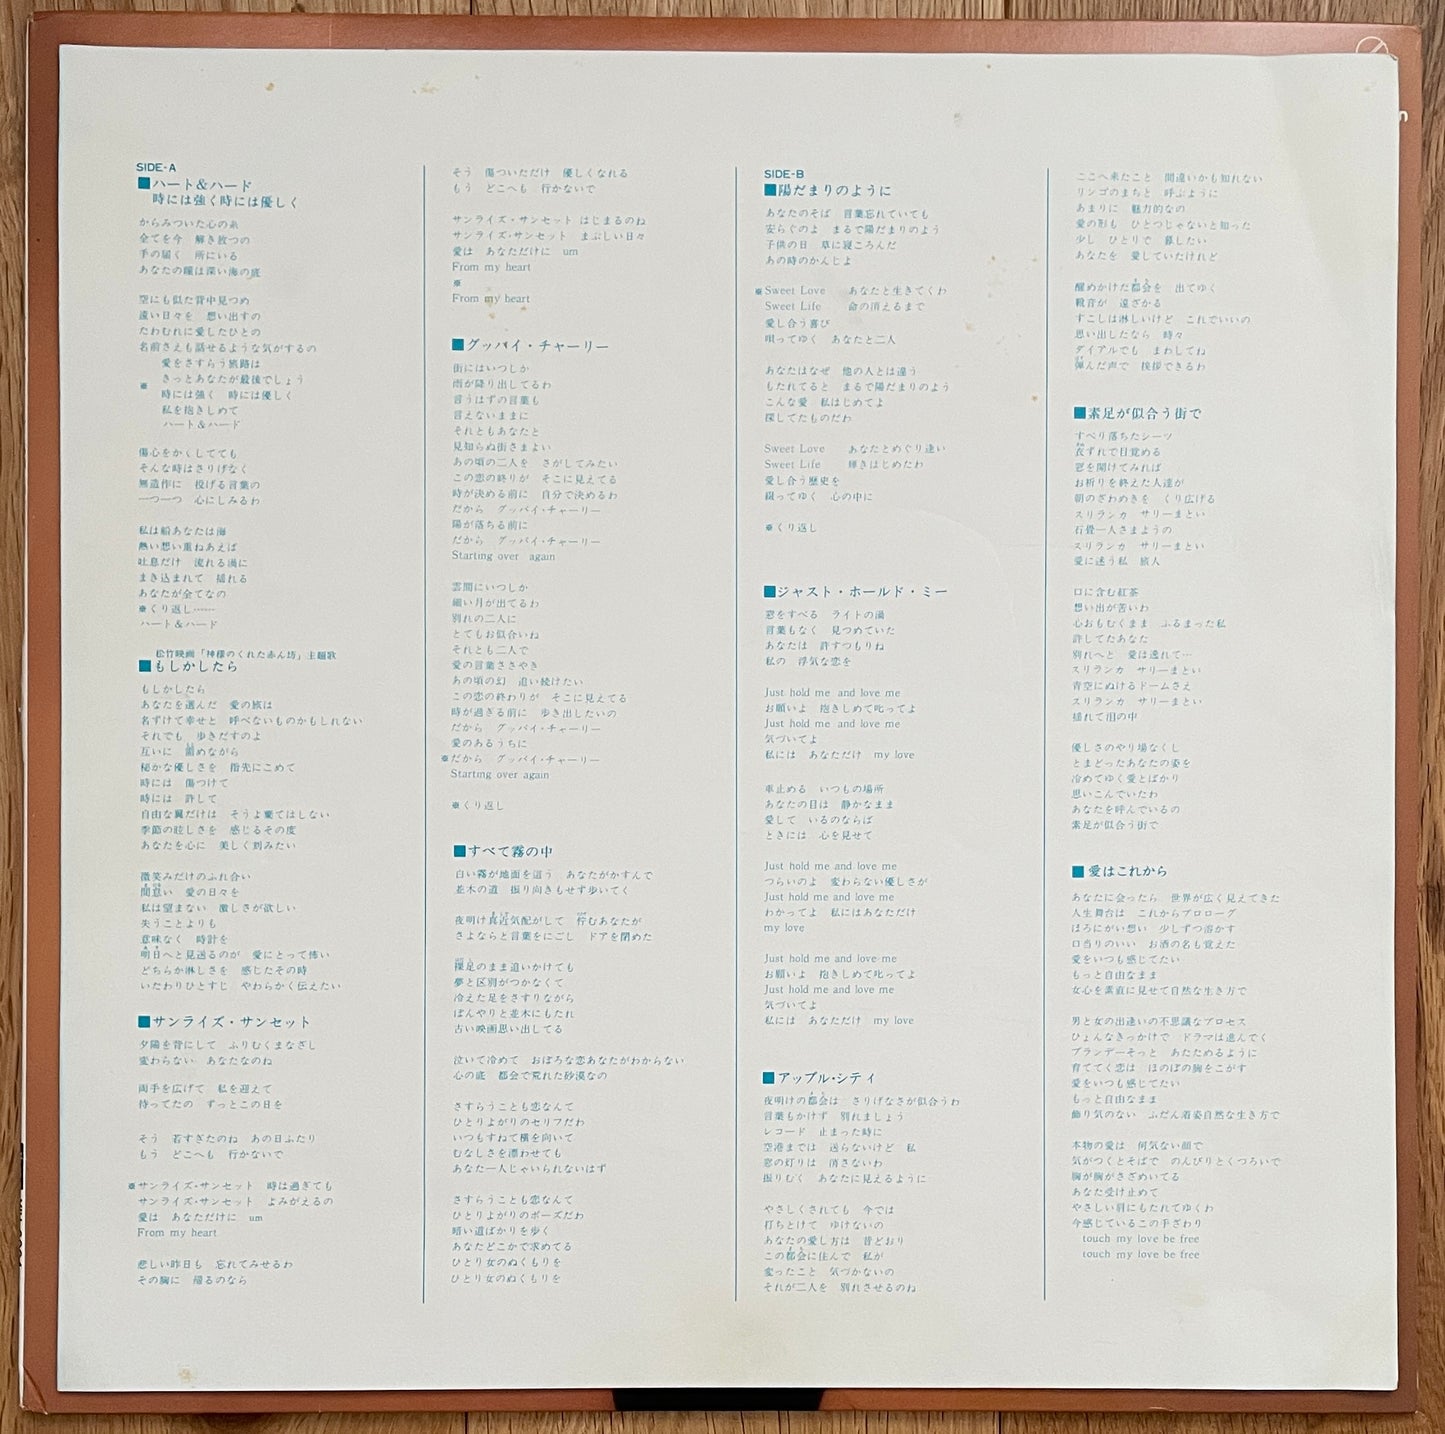 SIDE-A
■ハート＆ハード
時には強く時には優しく
からみついた心の糸
全てを今　解き放つの
手の届く　所にいる
あなたの瞳は深い海の底
空にも似た背中見つめ
遠い日々を　想い出すの
たわむれに愛したひとの
名前さえも話せるような気がするの
愛をさすらう旅路は
きっとあなたが最後でしょう
※
時には強く　時には優しく
私を抱きしめて
ハート＆ハード
傷心をかくしてても
そんな時はさりげなく
無造作に　投げる言葉の
一つ一つ　心にしみるわ
私は船あなたは海
熱い想い重ねあえば
吐息だけ　流れる渦に
まき込まれて　揺れる
あなたが全てなの
※くり返し……
ハート＆ハード
松竹映画「神様のくれた赤ん坊」主題歌
■もしかしたら
もしかしたら
あなたを選んだ　愛の旅は
名ずけて幸せと　呼べないものかもしれない
それでも　歩きだすのよ
互いに　めながら
秘かな優しさを　指先にこめて
時には　傷つけて
時には　許して
自由な翼だけは　そうよ棄てはしない
季節の眩しさを　感じるその度
あなたを心に　美しく刻みたい
微笑みだけのふれ合い
間違い　愛の日々を
私は望まない　激しさが欲しい
失うことよりも
意味なく　時計を
明日へと見送るのが　愛にとって怖い
どちらか淋しさを　感じたその時
いたわりひとすじ　やわらかく伝えたい
■サンライズ・サンセット
夕陽を背にして　ふりむくまなざし
変わらない　あなたなのね
両手を広げて　私を迎えて
待ってたの　ずっとこの日を
そう　若すぎたのね　あの日ふたり
もう　どこへも　行かないで
※サンライズ・サンセット　時は過ぎても
サンライズ・サンセット　よみがえるの
愛は　あなただけに　um
From my heart
悲しい昨日も　忘れてみせるわ
その胸に　帰るのなら
そう　傷ついただけ　優しくなれる
もう　どこへも　行かないで
サンライズ・サンセット はじまるのね
サンライズ・サンセット　まぶしい日々
愛は　あなただけに　um
From my heart
※
From my heart
■グッバイ・チャーリー
街にはいつしか
雨が降り出してるわ
言うはずの言葉も
言えないままに
それともあなたと
見知らぬ街さまよい
あの頃の二人を　さがしてみたい
この恋の終りが　そこに見えてる
時が決める前に　自分で決めるわ
だから　グッバイ・チャーリー
陽が落ちる前に
だから　グッバイ・チャーリー
Starting over again
雲間にいつしか
細い月が出てるわ
別れの二人に
とてもお似合いね
それとも二人で
愛の言葉ささやき
あの頃の幻　追い続けたい
この恋の終わりが　そこに見えてる
時が過ぎる前に　歩き出したいの
だから　グッバイ・チャーリー
愛のあるうちに
※だから　グッバイ・チャーリー
Starting over again
※くり返し
■すべて霧の中
白い霧が地面を這う　あなたがかすんで
並木の道　振り向きもせず歩いてく
夜明け真近気配がして　佇むあなたが
さよならと言葉をにごし　ドアを閉めた
裸足のまま追いかけても
夢と区別がつかなくて
冷えた足をさすりながら
ぼんやりと並木にもたれ
古い映画思い出してる
泣いて冷めて　おぼろな恋あなたがわからない
心の底　都会で荒れた砂漠なの
さすらうことも恋なんて
ひとりよがりのセリフだわ
いつもすねて横を向いて
むなしさを漂わせても
あなた一人じゃいられないはず
さすらうことも恋なんて
ひとりよがりのポーズだわ
暗い道ばかりを歩く
あなたどこかで求めてる
ひとり女のぬくもりを
ひとり女のぬくもりを
SIDE-B
■陽だまりのように
あなたのそば　言葉忘れていても
安らぐのよ　まるで陽だまりのよう
子供の日　草に寝ころんだ
あの時のかんじよ
※Sweet Love　あなたと生きてくわ
Sweet Life　命の消えるまで
愛し合う喜び
唄ってゆく　あなたと二人
あなたはなぜ　他の人とは違う
もたれてると　まるで陽だまりのよう
こんな愛　私はじめてよ
探してたものだわ
Sweet Love　あなたとめぐり逢い
Sweet Life　輝きはじめたわ
愛し合う歴史を
綴ってゆく　心の中に
※くり返し
■ジャスト・ホールド・ミー
窓をすべる　ライトの渦
言葉もなく　見つめていた
あなたは　許すつもりね
私の　浮気な恋を
Just hold me and love me
お願いよ　抱きしめて叱ってよ
Just hold me and love me
気づいてよ
私には　あなただけ　my love
車止める　いつもの場所
あなたの目は　静かなまま
愛して　いるのならば
ときには　心を見せて
Just hold me and love me
つらいのよ　変わらない優しさが
Just hold me and love me
わかってよ　私にはあなただけ
my love
Just hold me and love me
お願いよ　抱きしめて叱ってよ
Just hold me and love me
気づいてよ
私には　あなただけ　my love
■アップル・シティ
夜明けの都会は　さりげなさが似合うわ
言葉もかけず　別れましょう
レコード　止まった時に
空港までは　送らないけど　私
窓の灯りは　消さないわ
振りむく　あなたに見えるように
やさしくされても　今では
打ちとけて　ゆけないの
あなたの愛し方は　昔どおり
この都会に住んで　私が
変ったこと　気づかないの
それが二人を　別れさせるのね
ここへ来たこと　間違いかも知れない
リンゴのまちと　呼ぶように
あまりに　魅力的なの
愛の形も　ひとつじゃないと知った
少し　ひとりで　暮したい
あなたを　愛していたけれど
醒めかけた都会を　出てゆく
靴音が　遠ざかる
すこしは淋しいけど　これでいいの
思い出したなら　時々
ダイアルでも　まわしてね
弾んだ声で　挨拶できるわ
■素足が似合う街で
すべり落ちたシーツ
衣ずれで目覚める
窓を開けてみれば
お祈りを終えた人達が
朝のざわめきを　くり広げる
スリランカ　サリーまとい
石畳一人さまようの
スリランカ　サリーまとい
愛に迷う私　旅人
口に含む紅茶
想い出が苦いわ
心おもむくまま　ふるまった私
許してたあなた
別れへと　愛は逸れて…
スリランカ　サリーまとい
青空にぬけるドームさえ
スリランカ　サリーまとい
揺れて泪の中
優しさのやり場なくし
とまどったあなたの姿を
冷めてゆく愛とばかり
思いこんでいたわ
あなたを呼んでいるの
素足が似合う街で
■愛はこれから
あなたに会ったら　世界が広く見えてきた
人生舞台は　これからプロローグ
ほろにがい想い　少しずつ溶かす
口当りのいい　お酒の名も覚えた
愛をいつも感じてたい
もっと自由なまま
女心を素直に見せて自然な生き方で
男と女の出逢いの不思議なプロセス
ひょんなきっかけで　ドラマは進んでく
ブランデーそっと　あたためるように
育ててく恋は　ほのぼの胸をこがす
愛をいつも感じてたい
もっと自由なまま
飾り気のない　ふだん着姿自然な生き方で
本物の愛は　何気ない顔で
気がつくとそばで　のんびりとくつろいで
胸が胸がさざめいてる
あなた受け止めて
やさしい肩にもたれてゆくわ
今感じているこの手ざわり
touch my love be free
touch my love be free